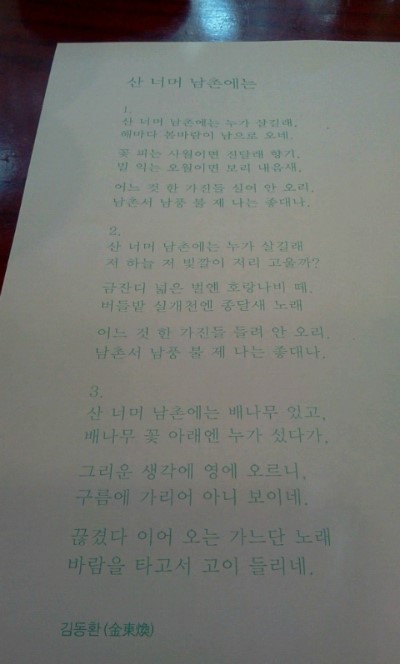 산 너머 남촌에는
1.
산 너머 남촌에는 누가 살길래,
해마다 봄바람이 남으로 오데.
꽃 피는 사월이면 진달래 향기,
밀 익는 오월이면 보리 내음새,
어느 것 한 가진들 실어 안 오리.
남촌서 남풍 불 제 나는 좋대나.
2.
산 너머 남촌에는 누가 살길래
저 하늘 저 빛깔이 저리 고울까?
금잔디 넓은 벌엔 호랑나비 떼,
버들밭 실개천엔 종달새 노래
어느 것 한 가진들 들려 안 오리.
남촌서 남풍 불 제 나는 좋대나.
3.
산 너머 남촌에는 배나무 있고,
배나무 꽃 아래엔 누가 섰다가,
그리운 생각에 영에 오르니,
구름에 가리어 아니 보이네.
끊겼다 이어 오는 가느단 노래
바람을 타고서 고이 들리네.
김동환(金東煥)